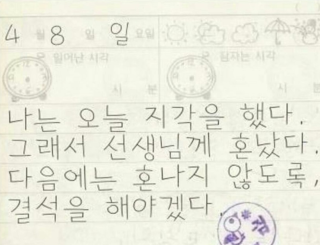 4월 8일 일요일
일어난 시각 잠자는 시각
시 분 시 분
나는 오늘 지각을 했다.
그래서 선생님께 혼났다.
다음에는 혼나지 않도록,
결석을 해야겠다.